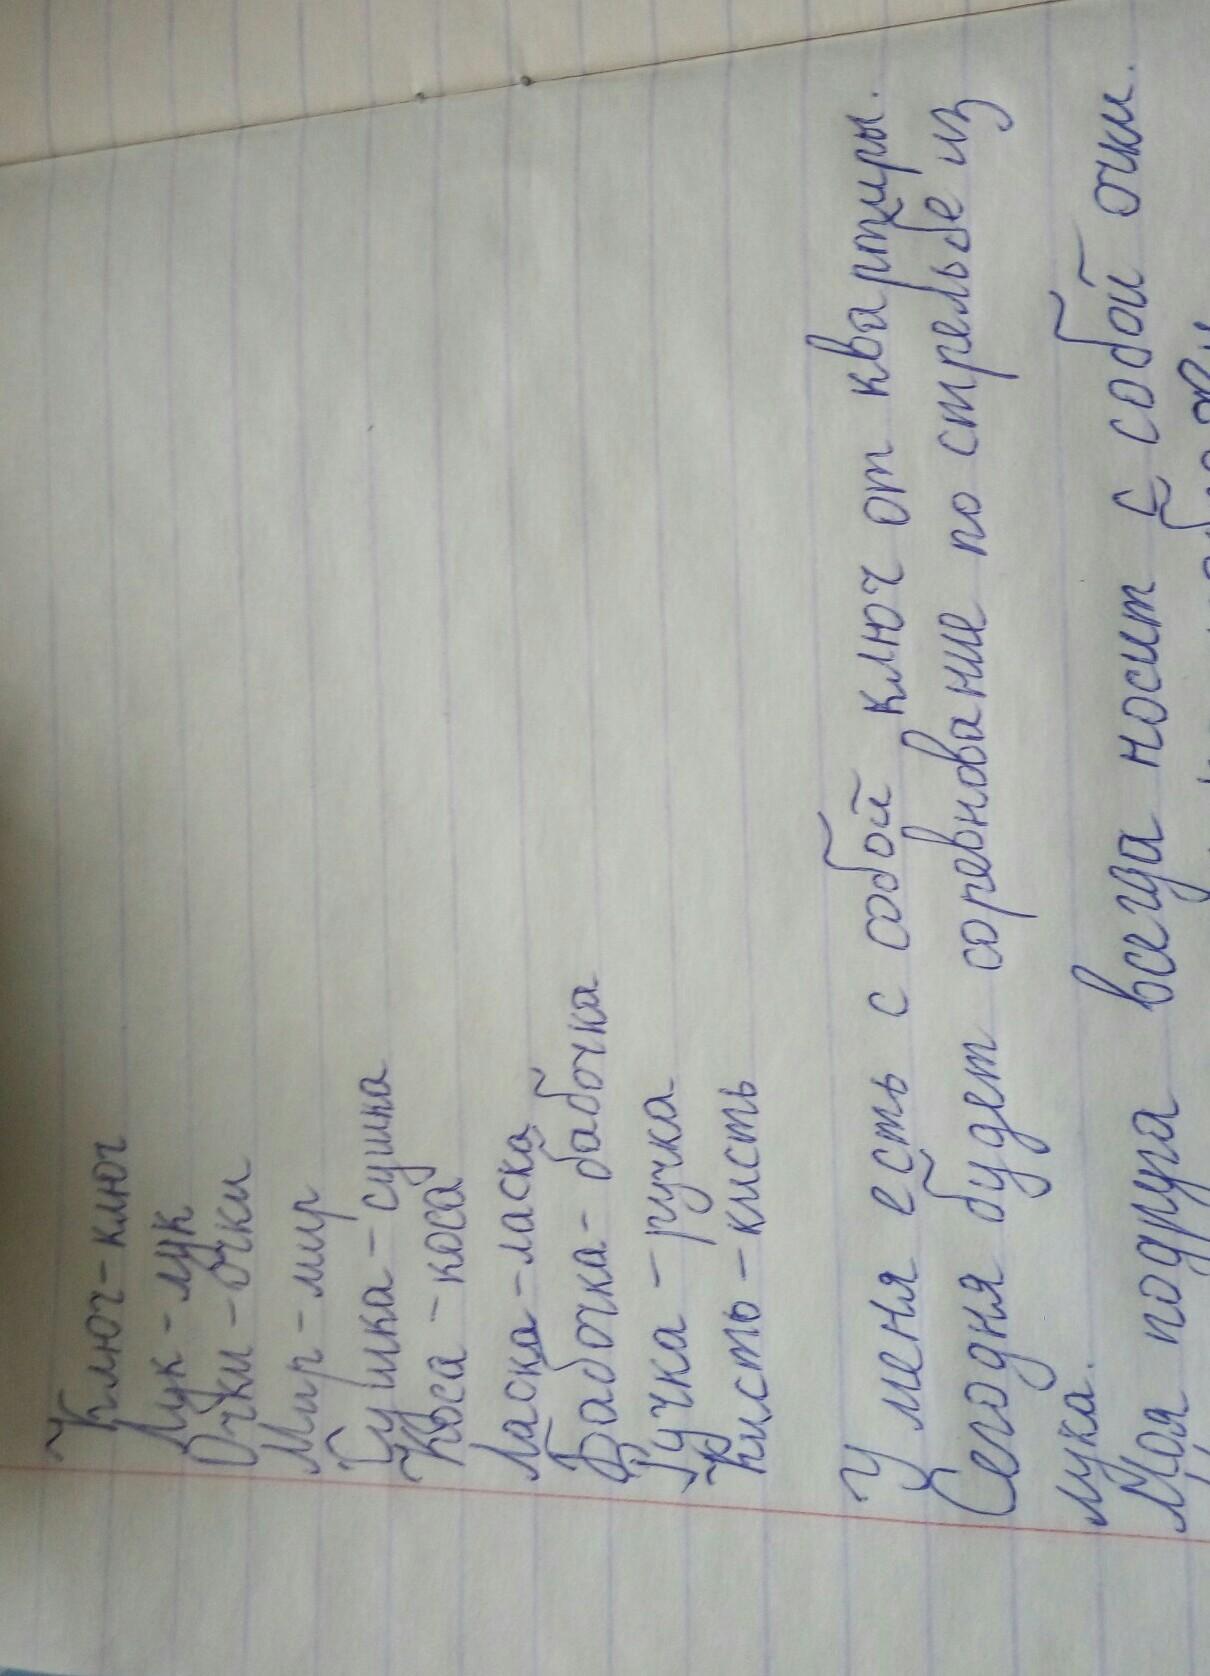 Ключ - ключ
Лук - лук
Очки - очки
Мир - мир
Сушка - сушка
Коса - коса
Ласка - ласка
Бабочка - бабочка
Ручка - ручка
Кисть - кисть
У меня есть с собой ключ от квартиры.
Сегодня будет соревнование по стрельбе из
лука.
Моя подруга всегда носит с собой очки.